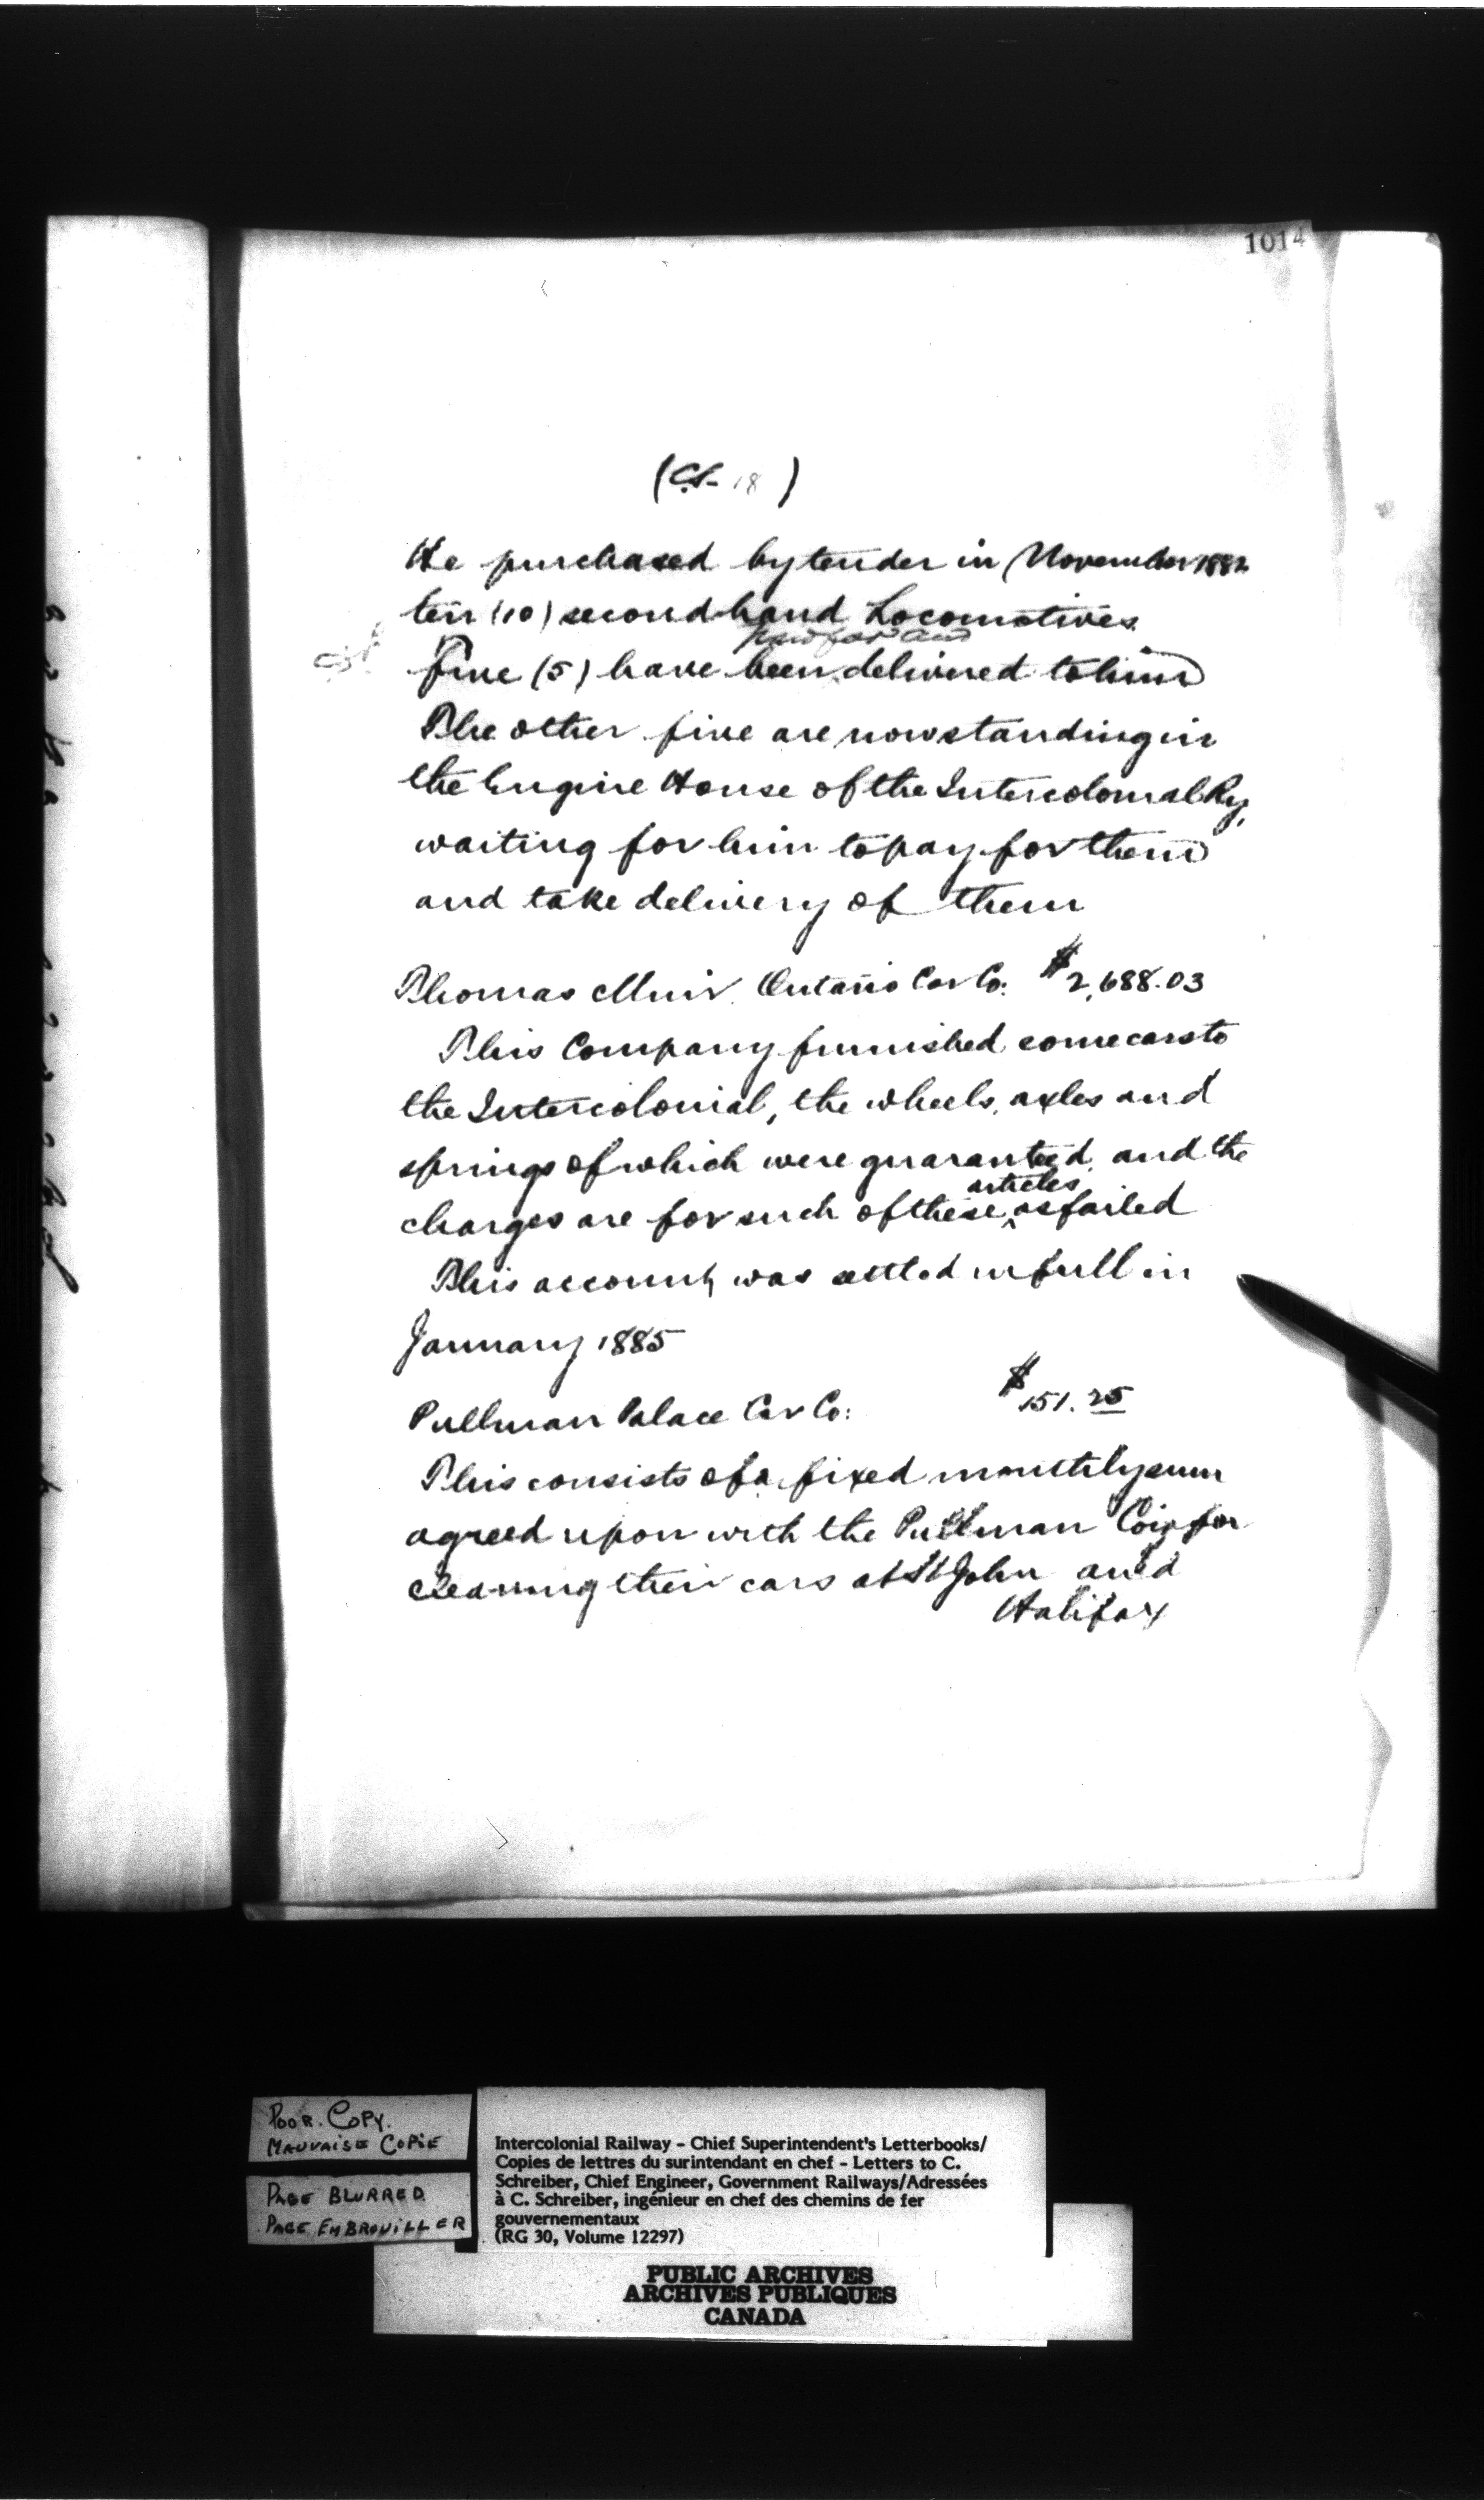 1014
(C.S. 18)
He purchased by tender in November 1882
ten (10) second hand Locomotives.
paid for and
Five (5) have been delivered to him
The other five are now standing in
the Engine House of the Intercolonial Ry,
waiting for him to pay for them
and take delivery of them
Thomas Muir. Ontario Car Co: $2,688.03
This Company furnished some cars to
the Intercolonial, the wheels, axles and
springs of which were guaranteed, and the
articles
charges are for such of these ^ as failed
This account was settled in full in
January 1885
Pullman Palace Car Co: $151.25
This consists of a fixed monthly sum
agreed upon with the Pullman Co: for
cleaning their cars at St John and
Halifax
POOR. COPY.
MAUVAISE COPIE
PAGE BLURRED
PAGE EMBROUILLER
Intercolonial Railway - Chief Superintendent's Letterbooks/
Copies de lettres du surintendant en chef - Letters to C.
Schreiber, Chief Engineer, Government Railways/Adressées
à C. Schreiber, ingénieur en chef des chemins de fer
gouvernementaux
(RG 30, Volume 12297)
PUBLIC ARCHIVES
ARCHIVES PUBLIQUES
CANADA